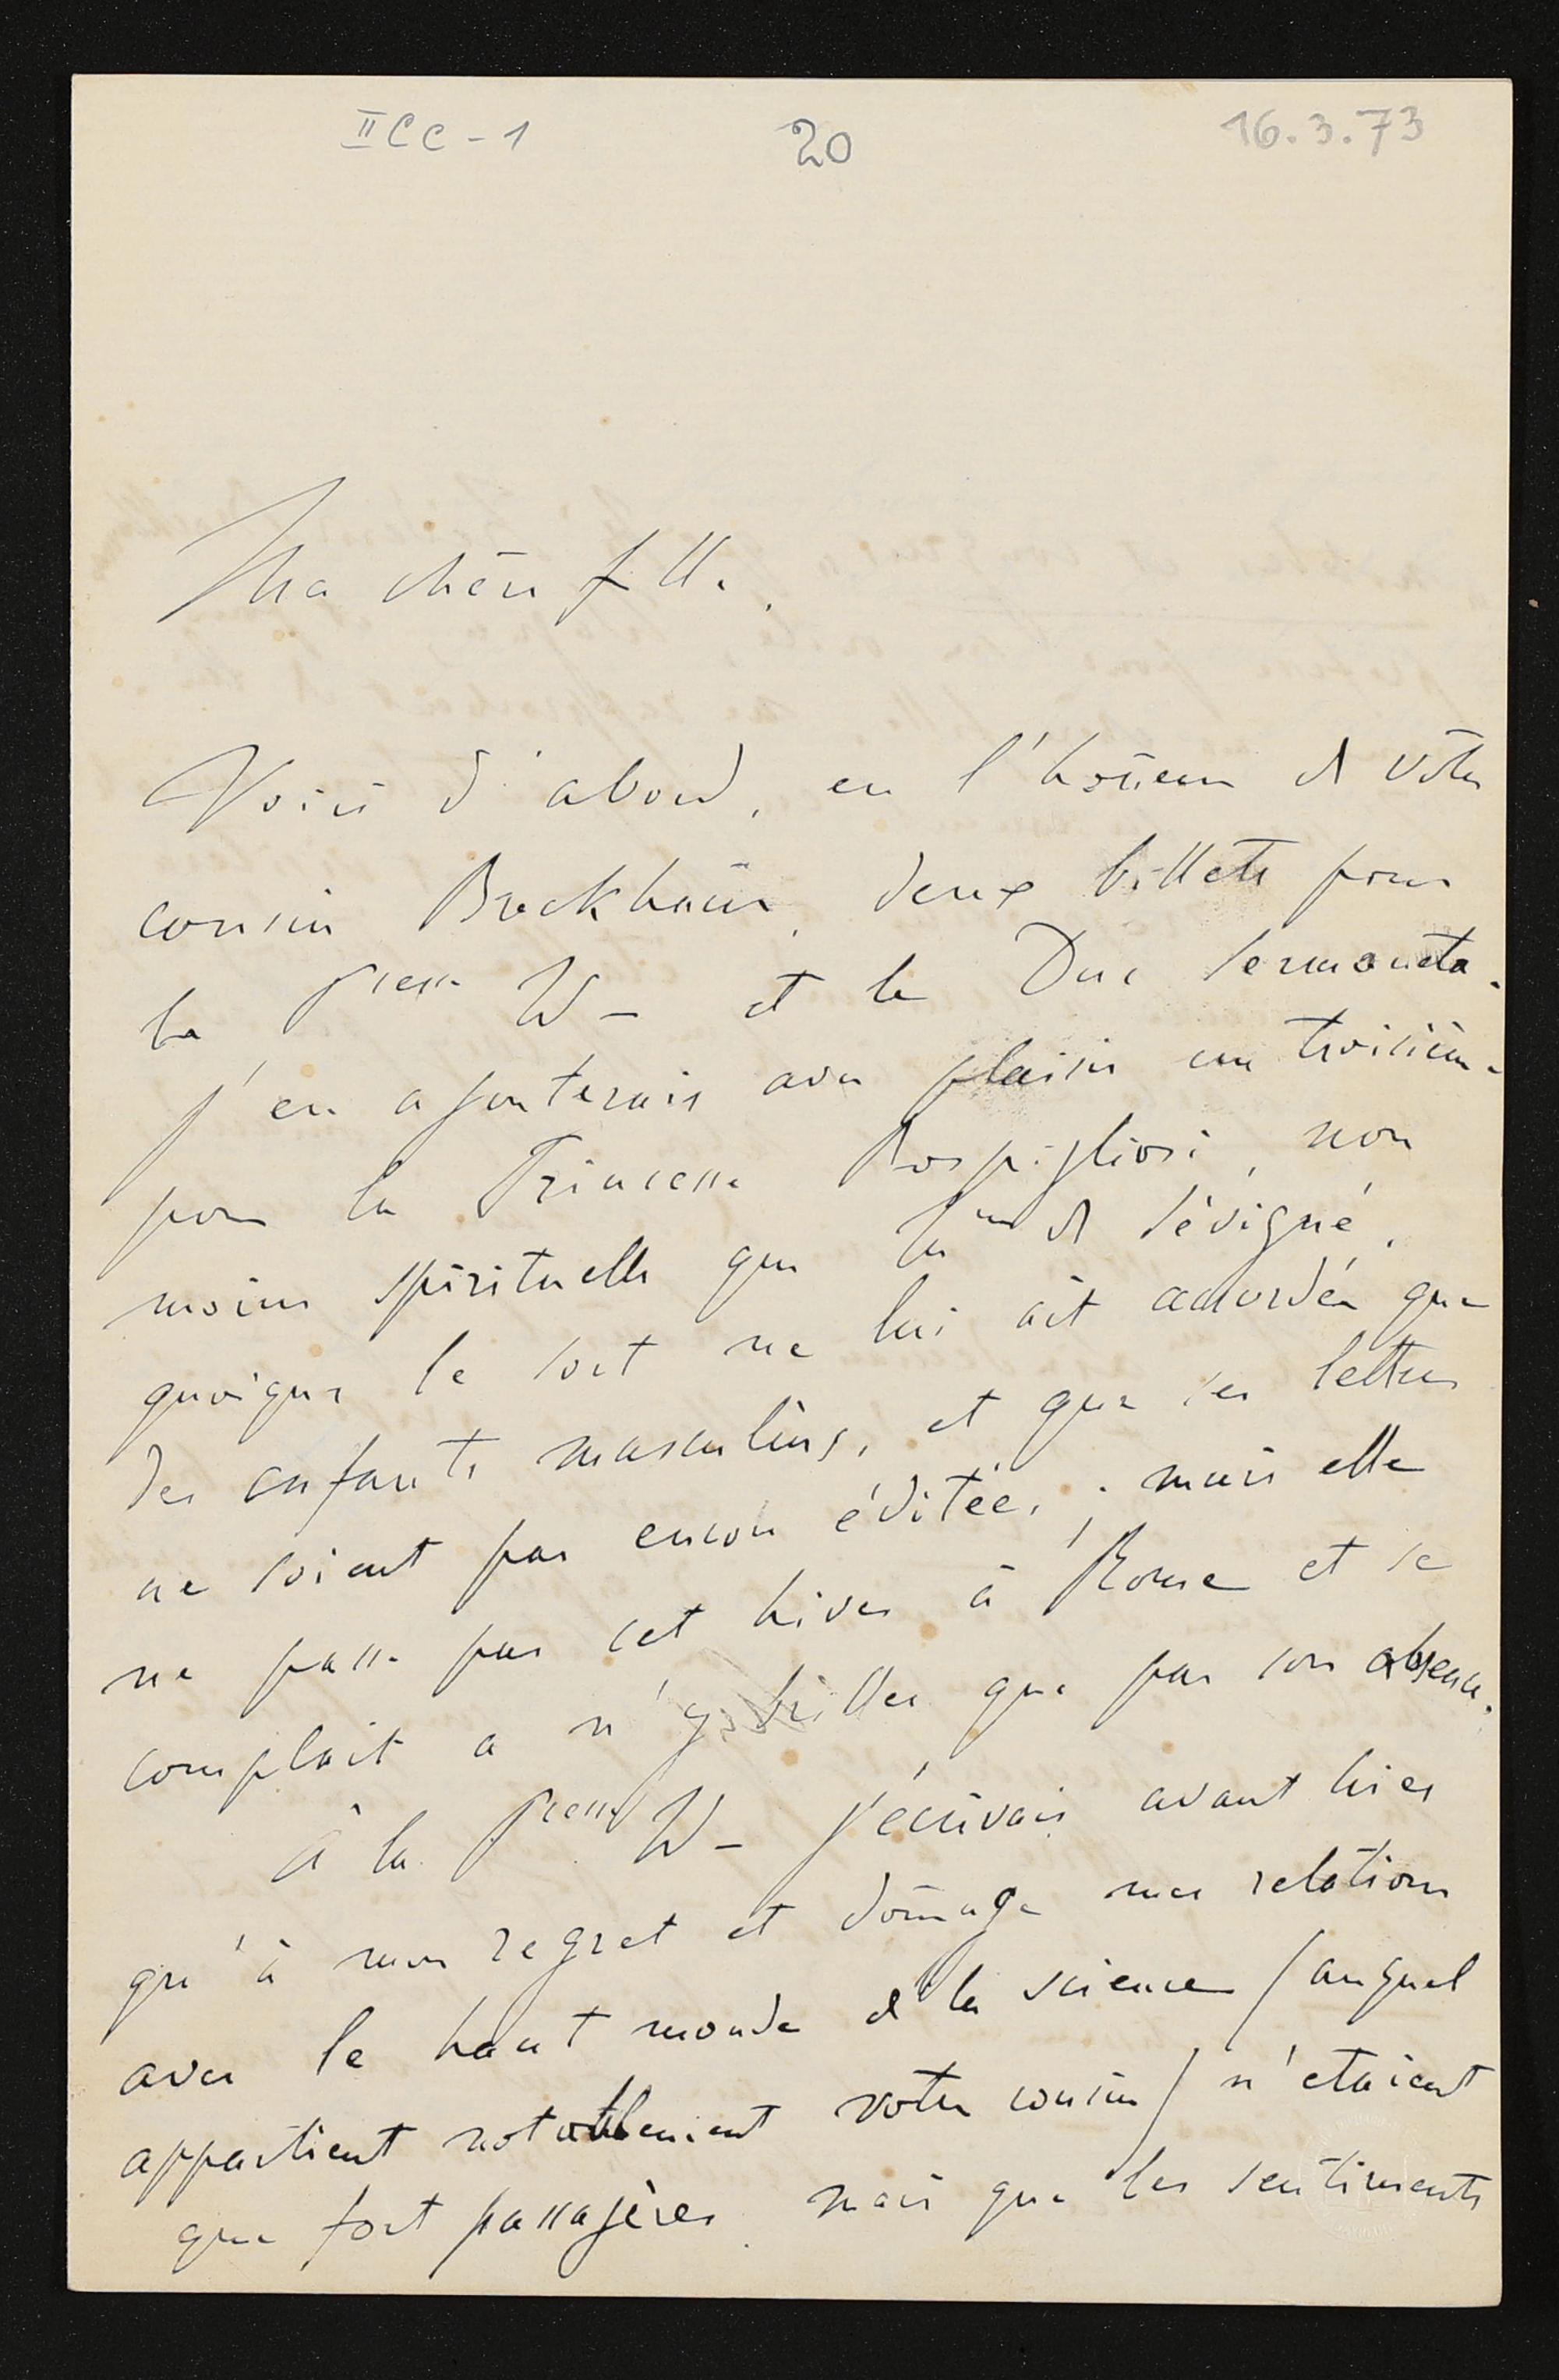 II CC - 1 20 16.3.73
Ma chère fille.
Voici d'abord, en l'hoñeur de vôtre
cousin Brockhaus, deux billets pour
la Pcesse W – et le Duc Sermoneta.
J'en ajouterais avec plaisir un troisième
pour la Princesse Rospigliosi, non
moins spirituelle que Me de Sévigné,
quoique le sort ne lui ait accordée que
des enfants masculins, et que ses lettres
ne soient pas encore éditées; mais elle
ne passe pas cet hiver à Rome et se
complait a n'y briller que par son absence.
à la Pcesse W – j'écrivais avant hier
qu'à mon regret et dom̄age mes relations
avec le haut monde de la science (auquel
appartient notablement votre cousin) n'etaient
que fort passagères mais que les sentiments